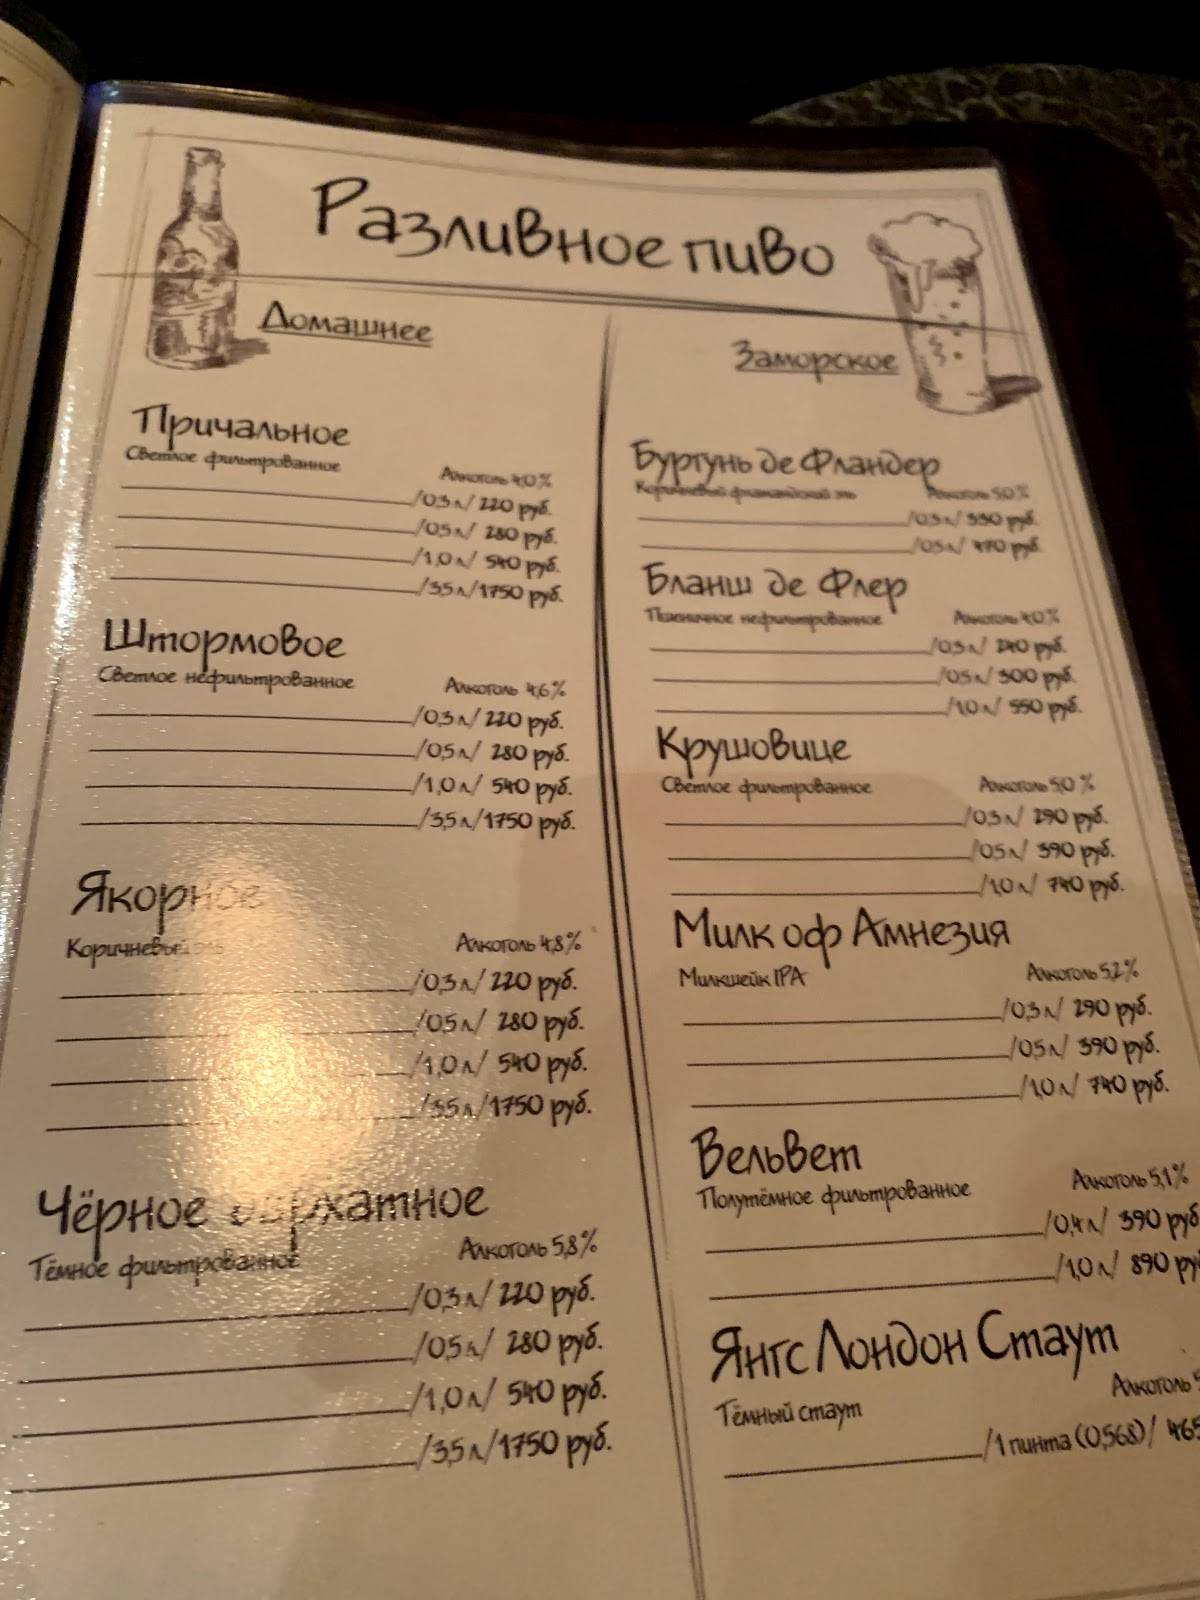 Разливное пиво
Домашнее
Причальное
Светлое фильтрованное Алкоголь 4,0%
/0,3 л/ 220 руб.
/0,5 л/ 280 руб.
/1,0 л/ 540 руб.
/3,5 л/1750 руб.
Штормовое
Светлое нефильтрованное Алкоголь 4,6%
/0,3 л/ 220 руб.
/0,5 л/ 280 руб.
/1,0 л/ 540 руб.
/3,5 л/1750 руб.
Якорное
Коричневый эль Алкоголь 4,8%
/0,3 л/ 220 руб.
/0,5 л/ 280 руб.
/1,0 л/ 540 руб.
/3,5 л/1750 руб.
Чёрное бархатное
Тёмное фильтрованное Алкоголь 5,8%
/0,3 л/ 220 руб.
/0,5 л/ 280 руб.
/1,0 л/ 540 руб.
/3,5 л/1750 руб.
Заморское
Бургунь де Фландер
Коричневый фламандский эль Алкоголь 5,0%
/0,3 л/ 330 руб.
/0,5 л/ 470 руб.
Бланш де Флер
Пшеничное нефильтрованное Алкоголь 4,0%
/0,3 л/ 240 руб.
/0,5 л/ 300 руб.
/1,0 л/ 550 руб.
Крушовице
Светлое фильтрованное Алкоголь 5,0 %
/0,3 л/ 290 руб.
/0,5 л/ 390 руб.
/1,0 л/ 740 руб.
Милк оф Амнезия
Милкшейк IPA Алкоголь 5,2%
/0,3 л/ 290 руб.
/0,5 л/ 390 руб.
/1,0 л/ 740 руб.
Вельвет
Полутёмное фильтрованное Алкоголь 5,1%
/0,4 л/ 390 руб
/1,0 л/ 890 ру
Янгс Лондон Стаут
Тёмный стаут Алкоголь
/1 пинта (0,568)/ 465